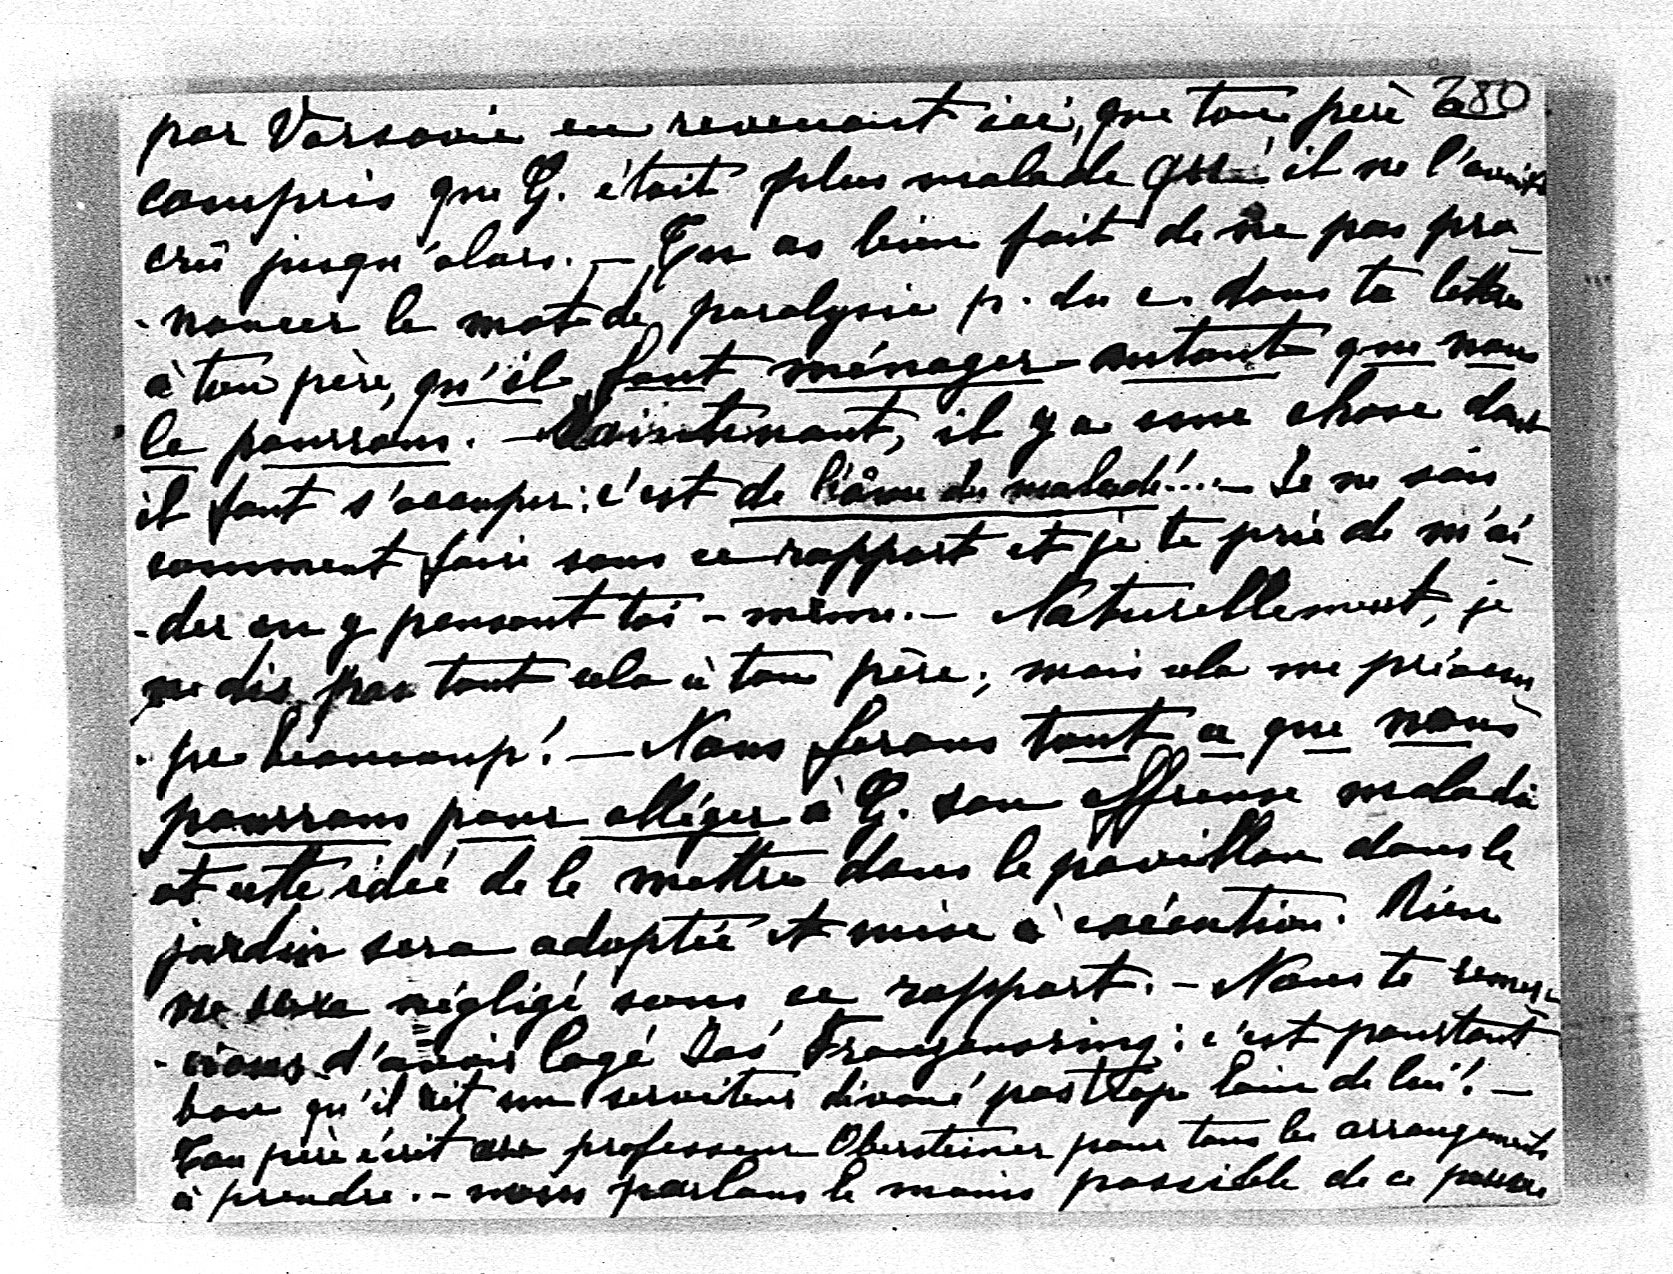 380
par Varsovie en revenant ici, que ton père a
compris que G. était plus malade qu'il ne l'avait
crû jusqu'alors. — Tu as bien fait de ne pas pro-
-noncer le mot de paralysie p. du c. dans ta lettre
à ton père, qu'il faut ménager autant que nous
le pourrons. — Maintenant, il y a une chose dont
il faut s'occuper: c'est de l'âme du malade!... — Je ne sais
comment faire sous ce rapport et je te prie de m'ai-
-der en y pensant toi-même. — Naturellement, je
ne dis pas tout cela à ton père; mais cela me préoccu
-pe beaucoup! — Nous ferons tout ce que nous
pourrons pour alléger à G. son affreuse maladie
et cette idée de le mettre dans le pavillon dans le
jardin sera adoptée et mise à exécution. Rien
ne sera négligé sous ce rapport. — Nous te remer-
-cions d'avoir logé : c'est pourtant
bon qu'il ait un serviteur dévoué pas trop loin de lui! —
Ton père écrit au professeur Obersteiner pour tous les arrangements
à prendre. — nous parlons le moins possible de ce pauvre